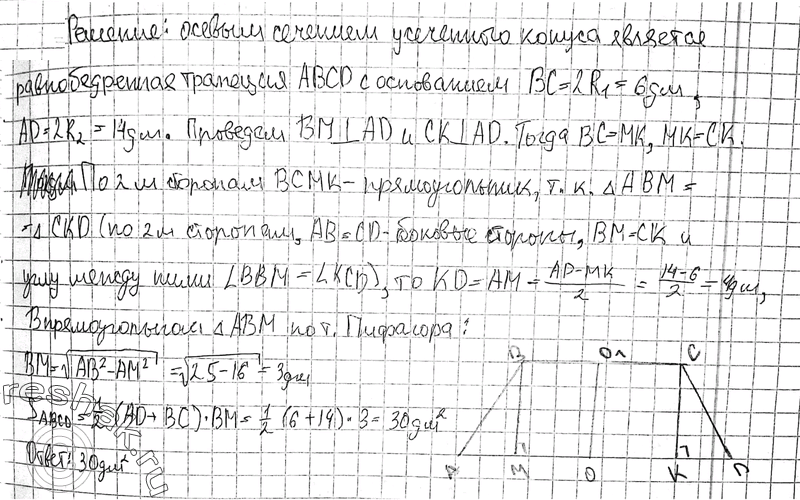 Решение: осевым сечением усеченного конуса является
равнобедренная трапеция ABCD с основанием BC=2R₁=6дм,
AD=2R₂=14дм. Проведем BM⊥AD и CK⊥AD. Тогда BC=MK, MK=CK.
По 2м сторонам BCMK-прямоугольник, т.к. △ABM=
=△CKD (по 2м сторонам, AB=CD-боковые стороны, BM=CK и
углу между ними ∠BBM=∠KCD), то KD=AM=(AD-MK)/2=(14-6)/2=4дм,
В прямоугольном △ABM по т. Пифагора:
BM=√(AB²-AM²)=√(25-16)=3дм
S ABCD=1/2(AD+BC)·BM=1/2(6+14)·3=30дм²
Ответ: 30дм²
B O₁ C
A M O K D
reshak.ru